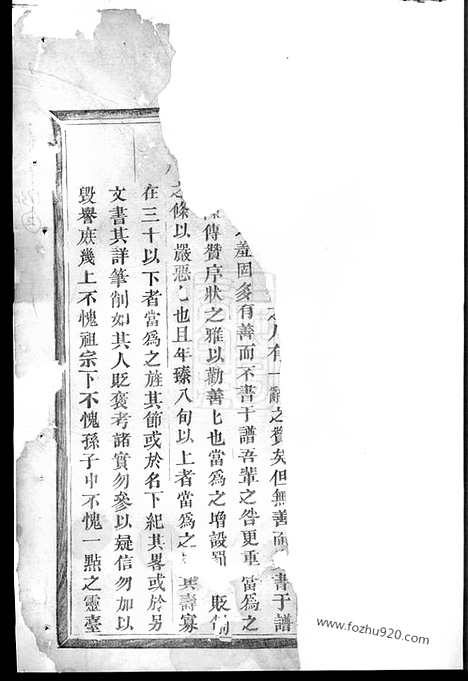 之人有一辭之贊矣但無善而書于譜
羞固多有善而不書于譜吾輩之咎更重當為之
傳贊序狀之雅以勸善也當為之增設貶
之條以嚴惡也且年臻八旬以上者當為之其壽寡
在三十以下者當為之旌其節或於名下紀其畧或於另
文書其詳筆削如其人貶褒考諸實勿參以疑信勿加以
毀譽庶幾上不愧祖宗下不愧孫子中不愧一點之靈臺
www.fozhu920.com